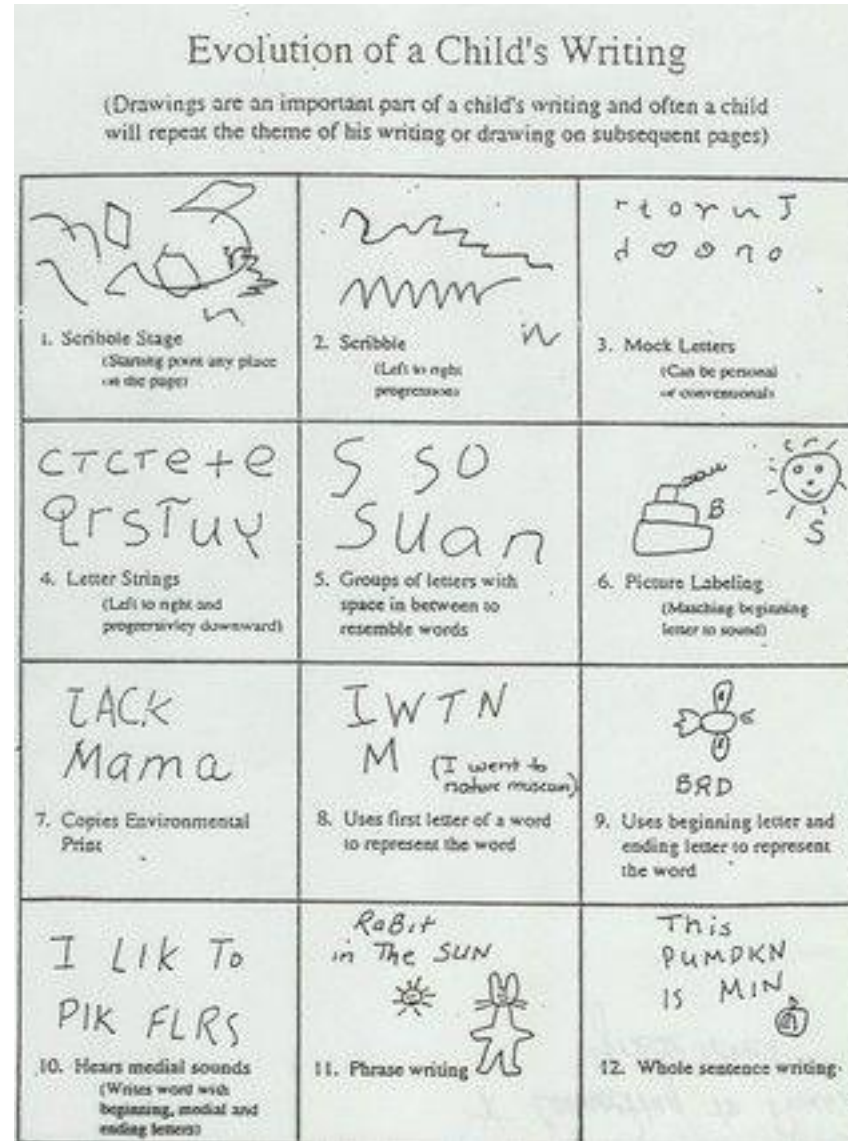 Evolution of a Child's Writing
(Drawings are an important part of a child's writing and often a child
will repeat the theme of his writing or drawing on subsequent pages)
r t o r u J
d o o n o
1. Scribble Stage
(Starting point any place
on the page)
2. Scribble
(Left to right
progression)
3. Mock Letters
(Can be personal
or conventional)
CTCTe+e
QrsTuy
4. Letter Strings
(Left to right and
progressivley downward)
S SO
SUan
5. Groups of letters with
space in between to
resemble words
B
S
6. Picture Labeling
(Matching beginning
letter to sound)
ZACK
Mama
7. Copies Environmental
Print
I W T N
M (I went to
nature museum)
8. Uses first letter of a word
to represent the word
BRD
9. Uses beginning letter and
ending letter to represent
the word
I LIK To
PIK FLRS
10. Hears medial sounds
(Writes word with
beginning, medial and
ending letters)
RaBit
in The SUN
11. Phrase writing
This
PUMPKN
IS MIN
12. Whole sentence writing.